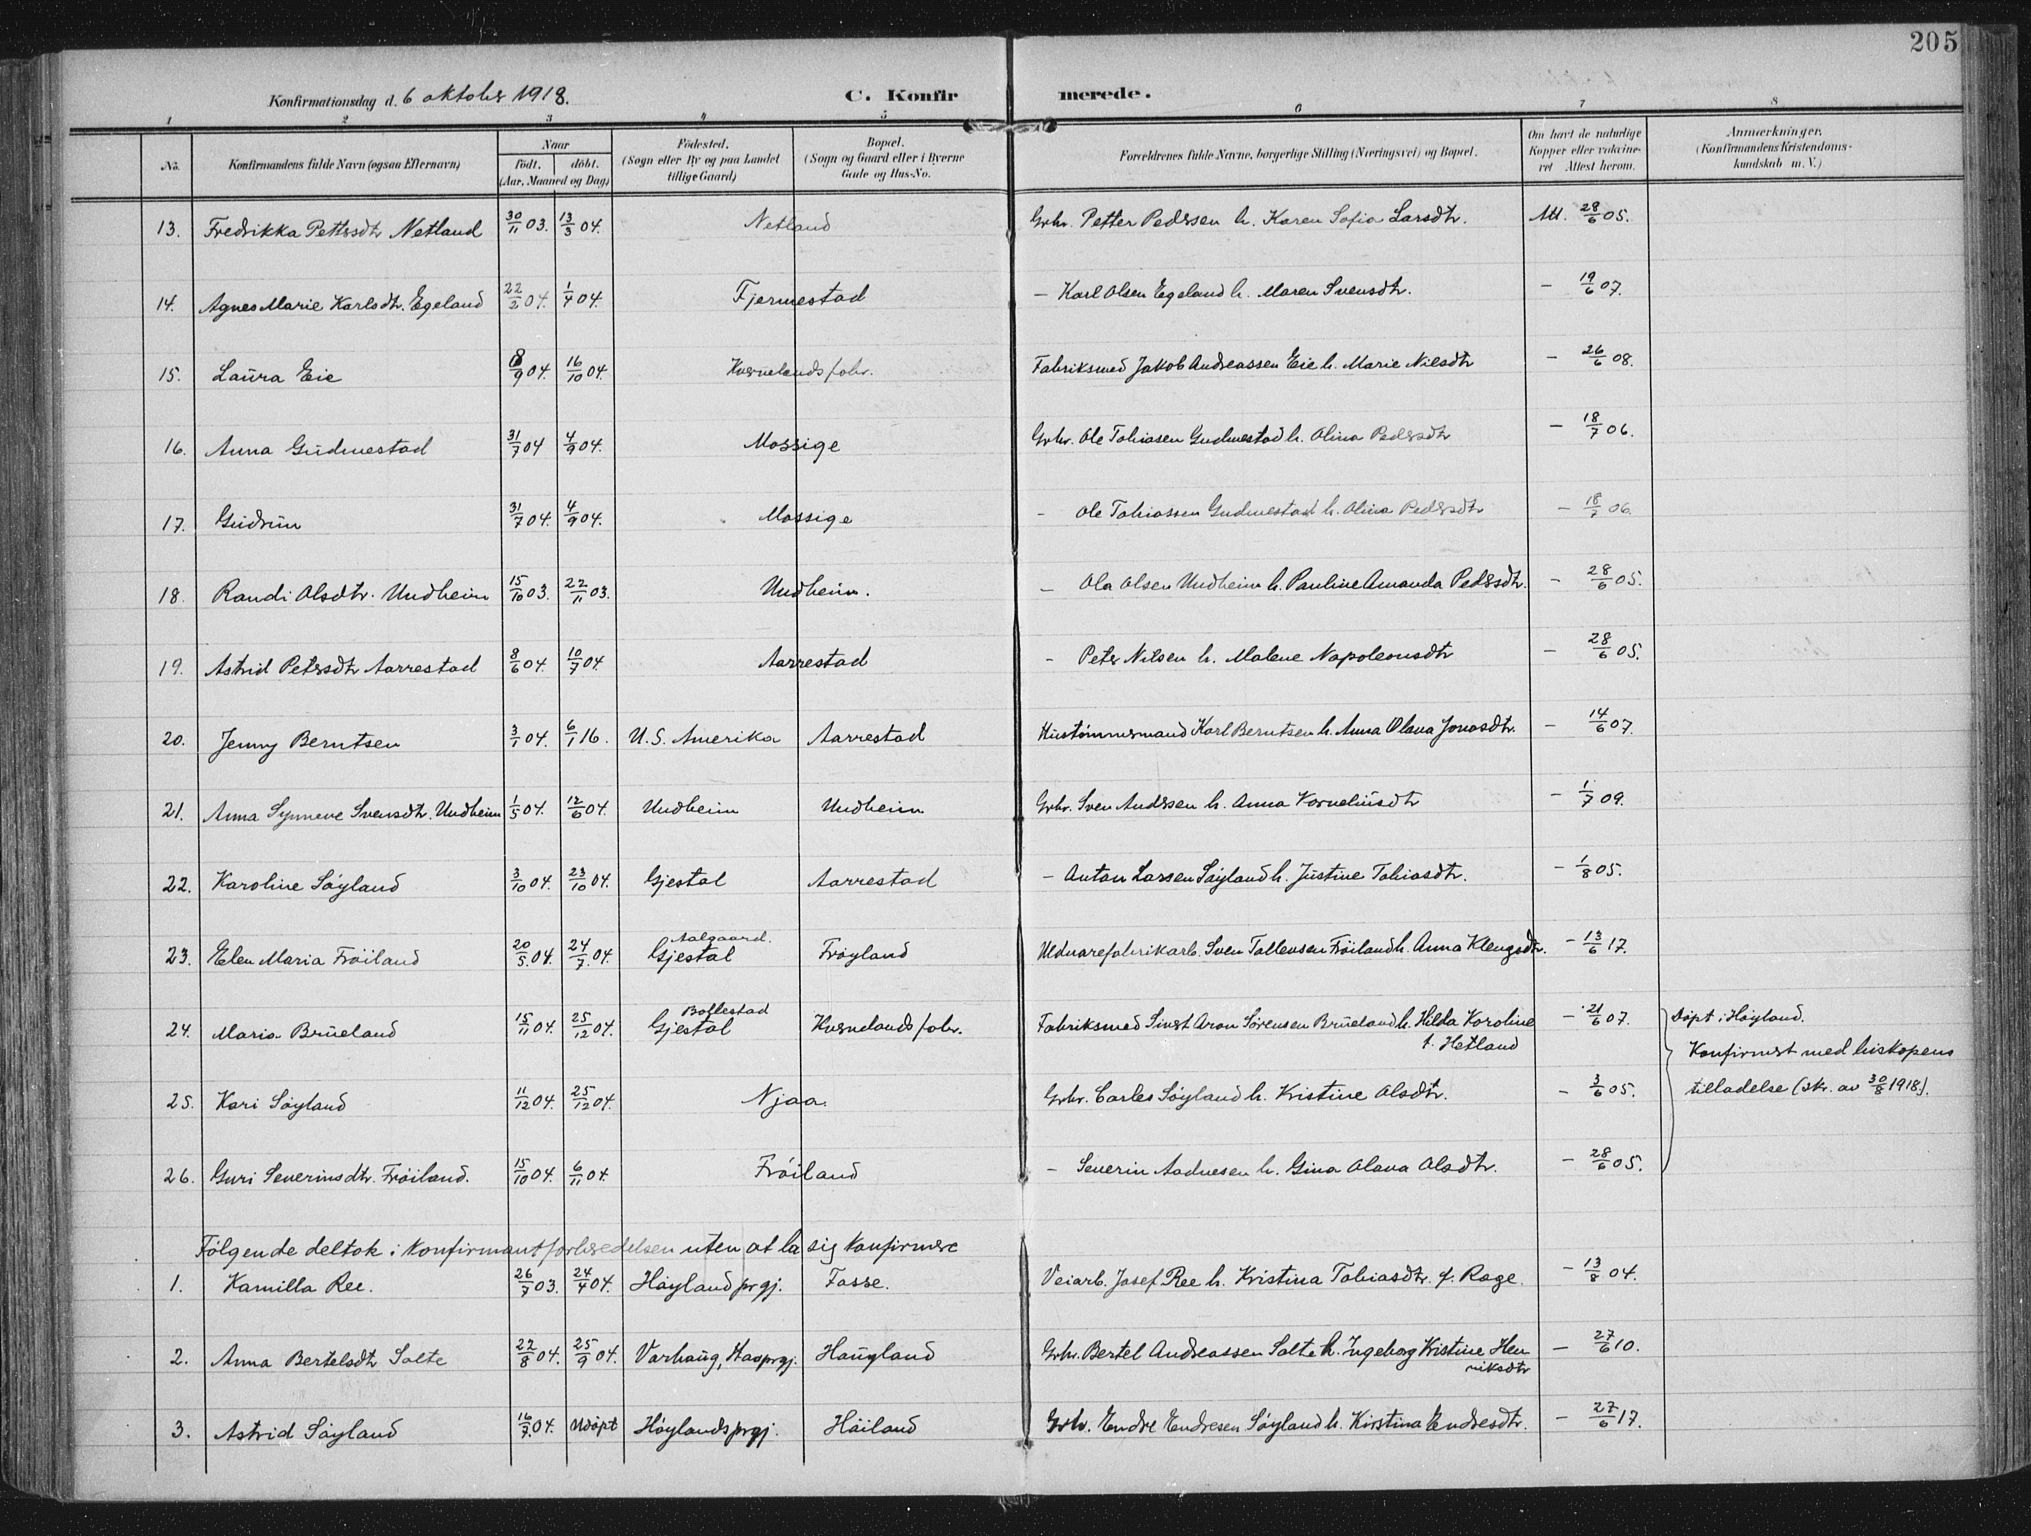 205
Konfirmationsdag d. 6 oktober 1918. C. Konfirmerede.
1 2 3 4 5 6 7 8
No. Konfirmandens fulde Navn (ogsaa Efternavn) Naar født, døbt. (Aar, Maaned og Dag) Födested. (Sogn eller By og paa Landet tillige Gaard) Bopæl. (Sogn og Gaard eller i Byerne Gade og Hus-No. Forældrenes fulde Navne, borgerlige Stilling (Næringsvei) og Bopæl. Om havt de naturlige Kopper eller vakvineret Attest herom. Anmærkninger. (Konfirmandens Kristendomskundskab m. V.)
13. Fredrikka Pettersdtr Netland 30/11 03. 13/3 04. Netland Grbr. Petter Pedersen h. Karen Sofia Larsdtr. Att. 28/6 05.
14. Agnes Marie Karlsdtr. Egeland 22/2 04. 1/4 04. Fjermestad – Karl Olsen Egeland h. Maren Svensdtr. – 19/6 07.
15. Laura Eie 18/9 04. 16/10 04. Kvernelands fabr. Fabriksmed Jakob Andreassen Eie h. Marie Nilsdtr – 26/6 08.
16. Anna Gudmestad 31/7 04 4/9 04. Mossige Grbr. Ole Tobiasen Gudmestad h. Olina Pedersdtr – 18/7 06.
17. Gudrun 31/7 04. 4/9 04. Mossige – Ole Tobiassen Gudmestad h. Olina Pedersdtr – 18/7 06.
18. Randi Olsdtr. Undheim 15/10 03. 22/11 03. Undheim. – Ola Olsen Undheim h. Pauline Amanda Pedersdtr. – 28/6 05.
19. Astrid Petersdtr Aarrestad 8/6 04. 10/7 04. Aarrestad – Peter Nilsen h. Malene Napoleonsdtr – 28/6 05.
20. Jenny Berntsen 3/1 04. 6/1 16. U.S. Amerika Aarrestad Hustømmermand Karl Berntsen h. Anna Olava Jonasdtr. – 14/6 07.
21. Anna Synneve Svensdtr. Undheim 1/5 04. 12/6 04. Undheim Undheim Grbr. Sven Andersen h. Anna Korneliusdtr – 1/7 09.
22. Karoline Søyland 3/10 04. 23/10 04. Gjestal Aarrestad – Anton Larsen Søyland h. Justine Tobiasdtr. – 1/8 05.
23. Elen Maria Frøiland 20/5 04. 24/7 04. Aalgaard. Gjestal Frøyland Uldvarefabrikarb. Sven Tallevsen Frøiland h. Anna Klengsdtr. – 13/6 17.
24. Maria Brueland 15/11 04. 25/12 04. Bollestad Gjestal Kvernelands fabr. Fabriksmed Sivert Aron Sørensen Brueland h. Hilda Karoline f. Hetland – 21/6 07. Døpt i Høyland.
Konfirmert med biskopens
25. Kari Søyland 11/12 04. 25/12 04. Njaa. Grbr. Carles Søyland h. Kristine Olsdtr. – 3/6 05. tilladelse (skr. av 30/8 1918).
26. Guri Severinsdtr. Frøiland. 15/10 04. 6/11 04. Frøiland – Severin Aadnesen h. Gina Olava Olsdtr. – 28/6 05.
Følgende deltok i konfirmantforberedelsen uten at la sig konfirmere
1. Kamilla Ree. 26/7 03. 24/4 04. Høyland prgj. Fosse. Veiarb. Josef Ree h. Kristina Tobiasdtr. f. Rage. – 13/8 04.
2. Anna Bertelsdtr Salte 22/8 04. 25/9 04. Varhaug, Haaprgj. Haugland Grbr. Bertel Andreassen Salte h. Ingeborg Kristine Henriksdtr – 27/6 10.
3. Astrid Søyland 16/7 04. Udøpt Høylandsprgj. Høiland Grbr. Endre Endresen Søyland h. Kirstina Endresdtr. – 27/6 17.